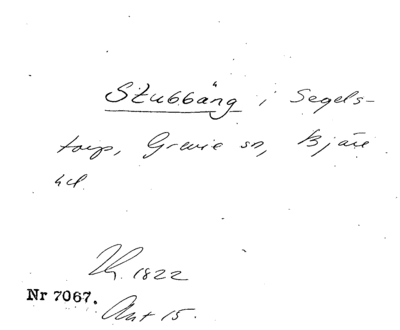 Stubbäng i Segels-
torp, Grevie sn, Bjäre
hd.
Lh. 1822
Nr 7067.
Ant 15.